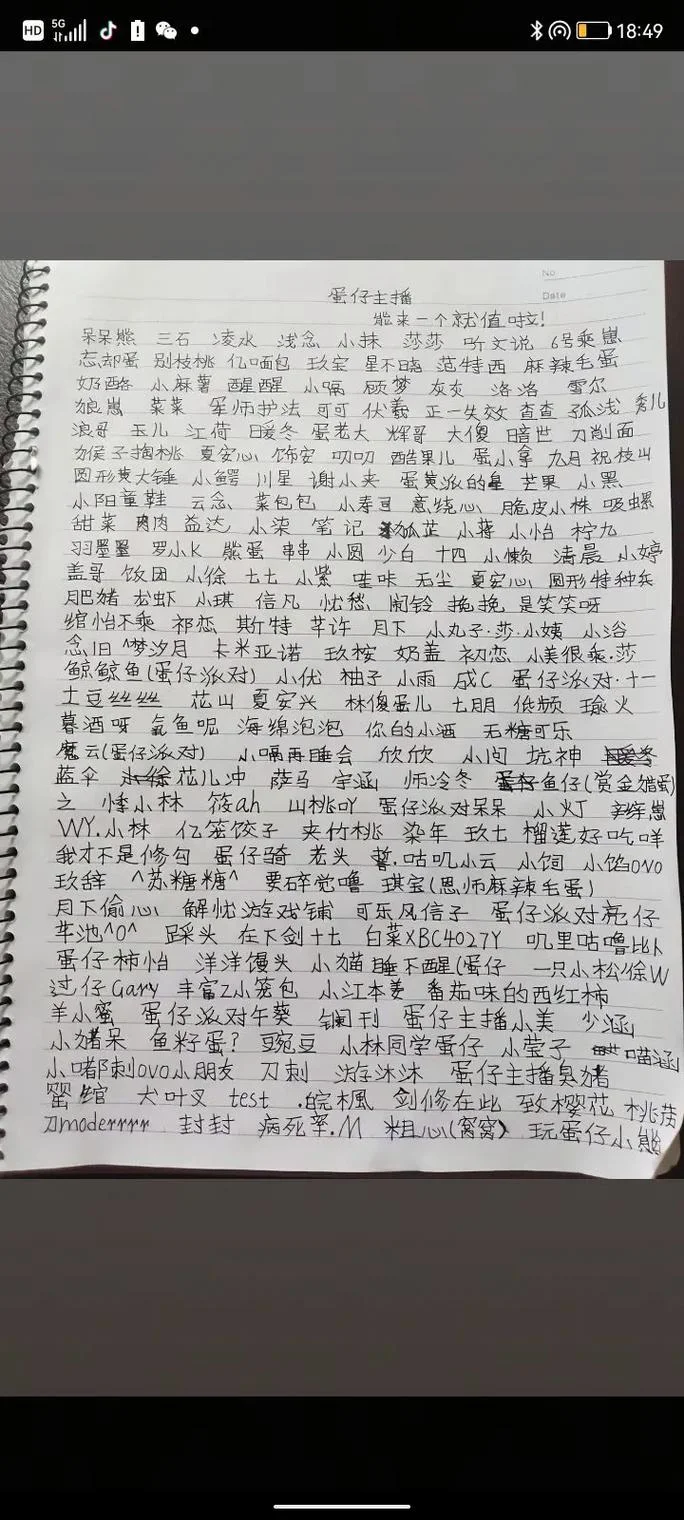 HD 5G 18:49
No
Date
蛋仔主播
能来一个就值啦!
呆呆熊 三石 凌水 浅念 小抹 莎莎 听文说 6号乘崽
忘却蛋 别枝桃 亿口面包 玖宝 星不晓 范特西 麻辣毛蛋
奶酪 小麻薯 醒醒 小嗝 顾梦 灰灰 洛洛 雪尔
狼崽 菜菜 军师护法 可可 伏羲 正一失效 查查 孤浅 秀儿
浪哥 玉儿 江荷 暖冬 蛋老大 辉哥 大傻 暗世 刀削面
猴子掏桃 夏安心 饰安 叨叨 酷果儿 蛋小拿 九月 祝枝山
圆形黄大锤 小鳄 川星 谢小夹 蛋黄派的星 芒果 小黑
小阳童鞋 云念 菜包包 小寿司 意绕心 脆皮小株 吸螺
甜菜 肉肉 益达 小染 笔记 孤芷 小蒋 小怡 柠九
羽墨墨 罗小K 熊蛋 串串 小圆 少白 十四 小懒 清晨 小婷
盖哥 饭团 小徐 七七 小紫 哇咔 无尘 夏安心 圆形特种兵
肥猪 龙虾 小琪 信凡 忧愁 闹铃 挽挽 是笑笑呀
绾怡不乘 祁恋 斯特 芊许 月下 小丸子·莎·小姨 小浴
念旧 ^梦汐月 卡米亚诺 玖桉 奶盖 初恋 小美很乘·莎
鲸鲸鱼(蛋仔派对) 小优 柚子 小雨 成C 蛋仔派对·十一
土豆丝丝 花山 夏安兴 林傻蛋儿 七朋 低频 瑜火
暮酒呀 氩鱼呢 海绵泡泡 你的小酒 无糖可乐
魔云(蛋仔派对) 小嗝再睡会 欣欣 小闫 坑神
蓝伞 花儿冲 萨马 宇涵 师冷冬 鱼仔(赏金猎蛋)
之 悸小林 筱ah 山桃吖 蛋仔派对呆呆 小灯
WY.小林 亿笼饺子 夹竹桃 染年 玖七 榴莲好吃咩
我才不是修勾 蛋仔骑 老头 .咕叽小云 小饲 小馅ovo
玖辞 ^苏糖糖^ 要碎觉噜 琪宝(恩师麻辣毛蛋)
月下偷心 解忧游戏铺 可乐风信子 蛋仔派对亮仔
芊池^o^ 踩头 在下剑十七 白菜XBC4027Y 叽里咕噜比卜
蛋仔柿怡 洋洋馒头 小猫睡不醒(蛋仔 一只小松/徐W
过仔Gary 丰富Z小笼包 小江本姜 番茄味的西红柿
羊小蜜 蛋仔派对午葵 刊 蛋仔主播小美 少涵
小猪呆 鱼籽蛋? 豌豆 小林同学蛋仔 小莹子 喵涵
小啫阝刺ovo小朋友 刀刺 游沐沐 蛋仔主播臭猪
绾 犬叶叉 test .皖楓 剑修在此 致樱花
刀moderrrr 封封 病死率.M 粗心(窝窝) 玩蛋仔小熊